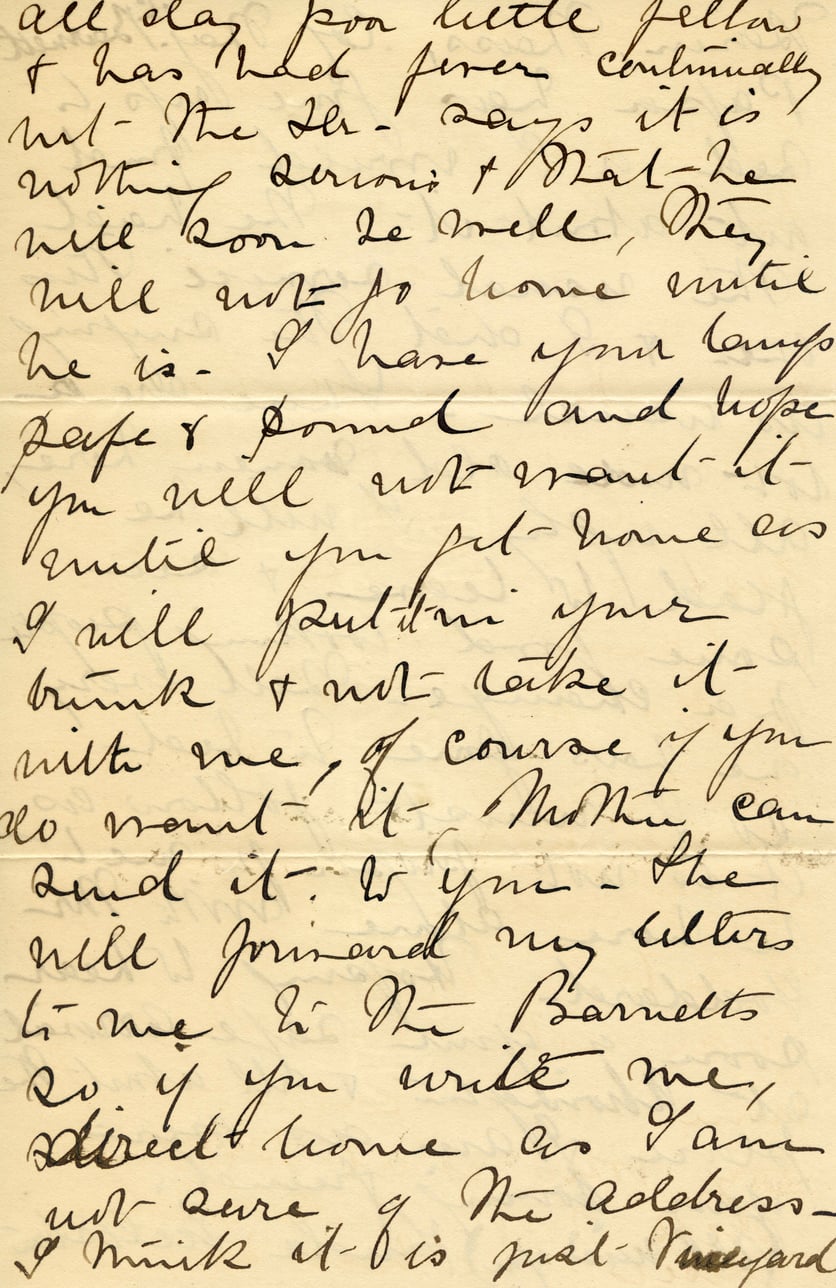 all day poor little fellow
& has had fever continually
but the Dr - says it is
nothing serious & that he
will soon be well, They
will not go home until
he is - I have your lamp
safe & sound and hope
you will not want it
until you get home as
I will put it in your
trunk & not take it
with me, of course if you
do want it, Mother can
send it to you - She
will forward my letters
to me to the Barnetts
so if you write me,
direct home as I am
not sure of the address -
I think it is just Vineyard